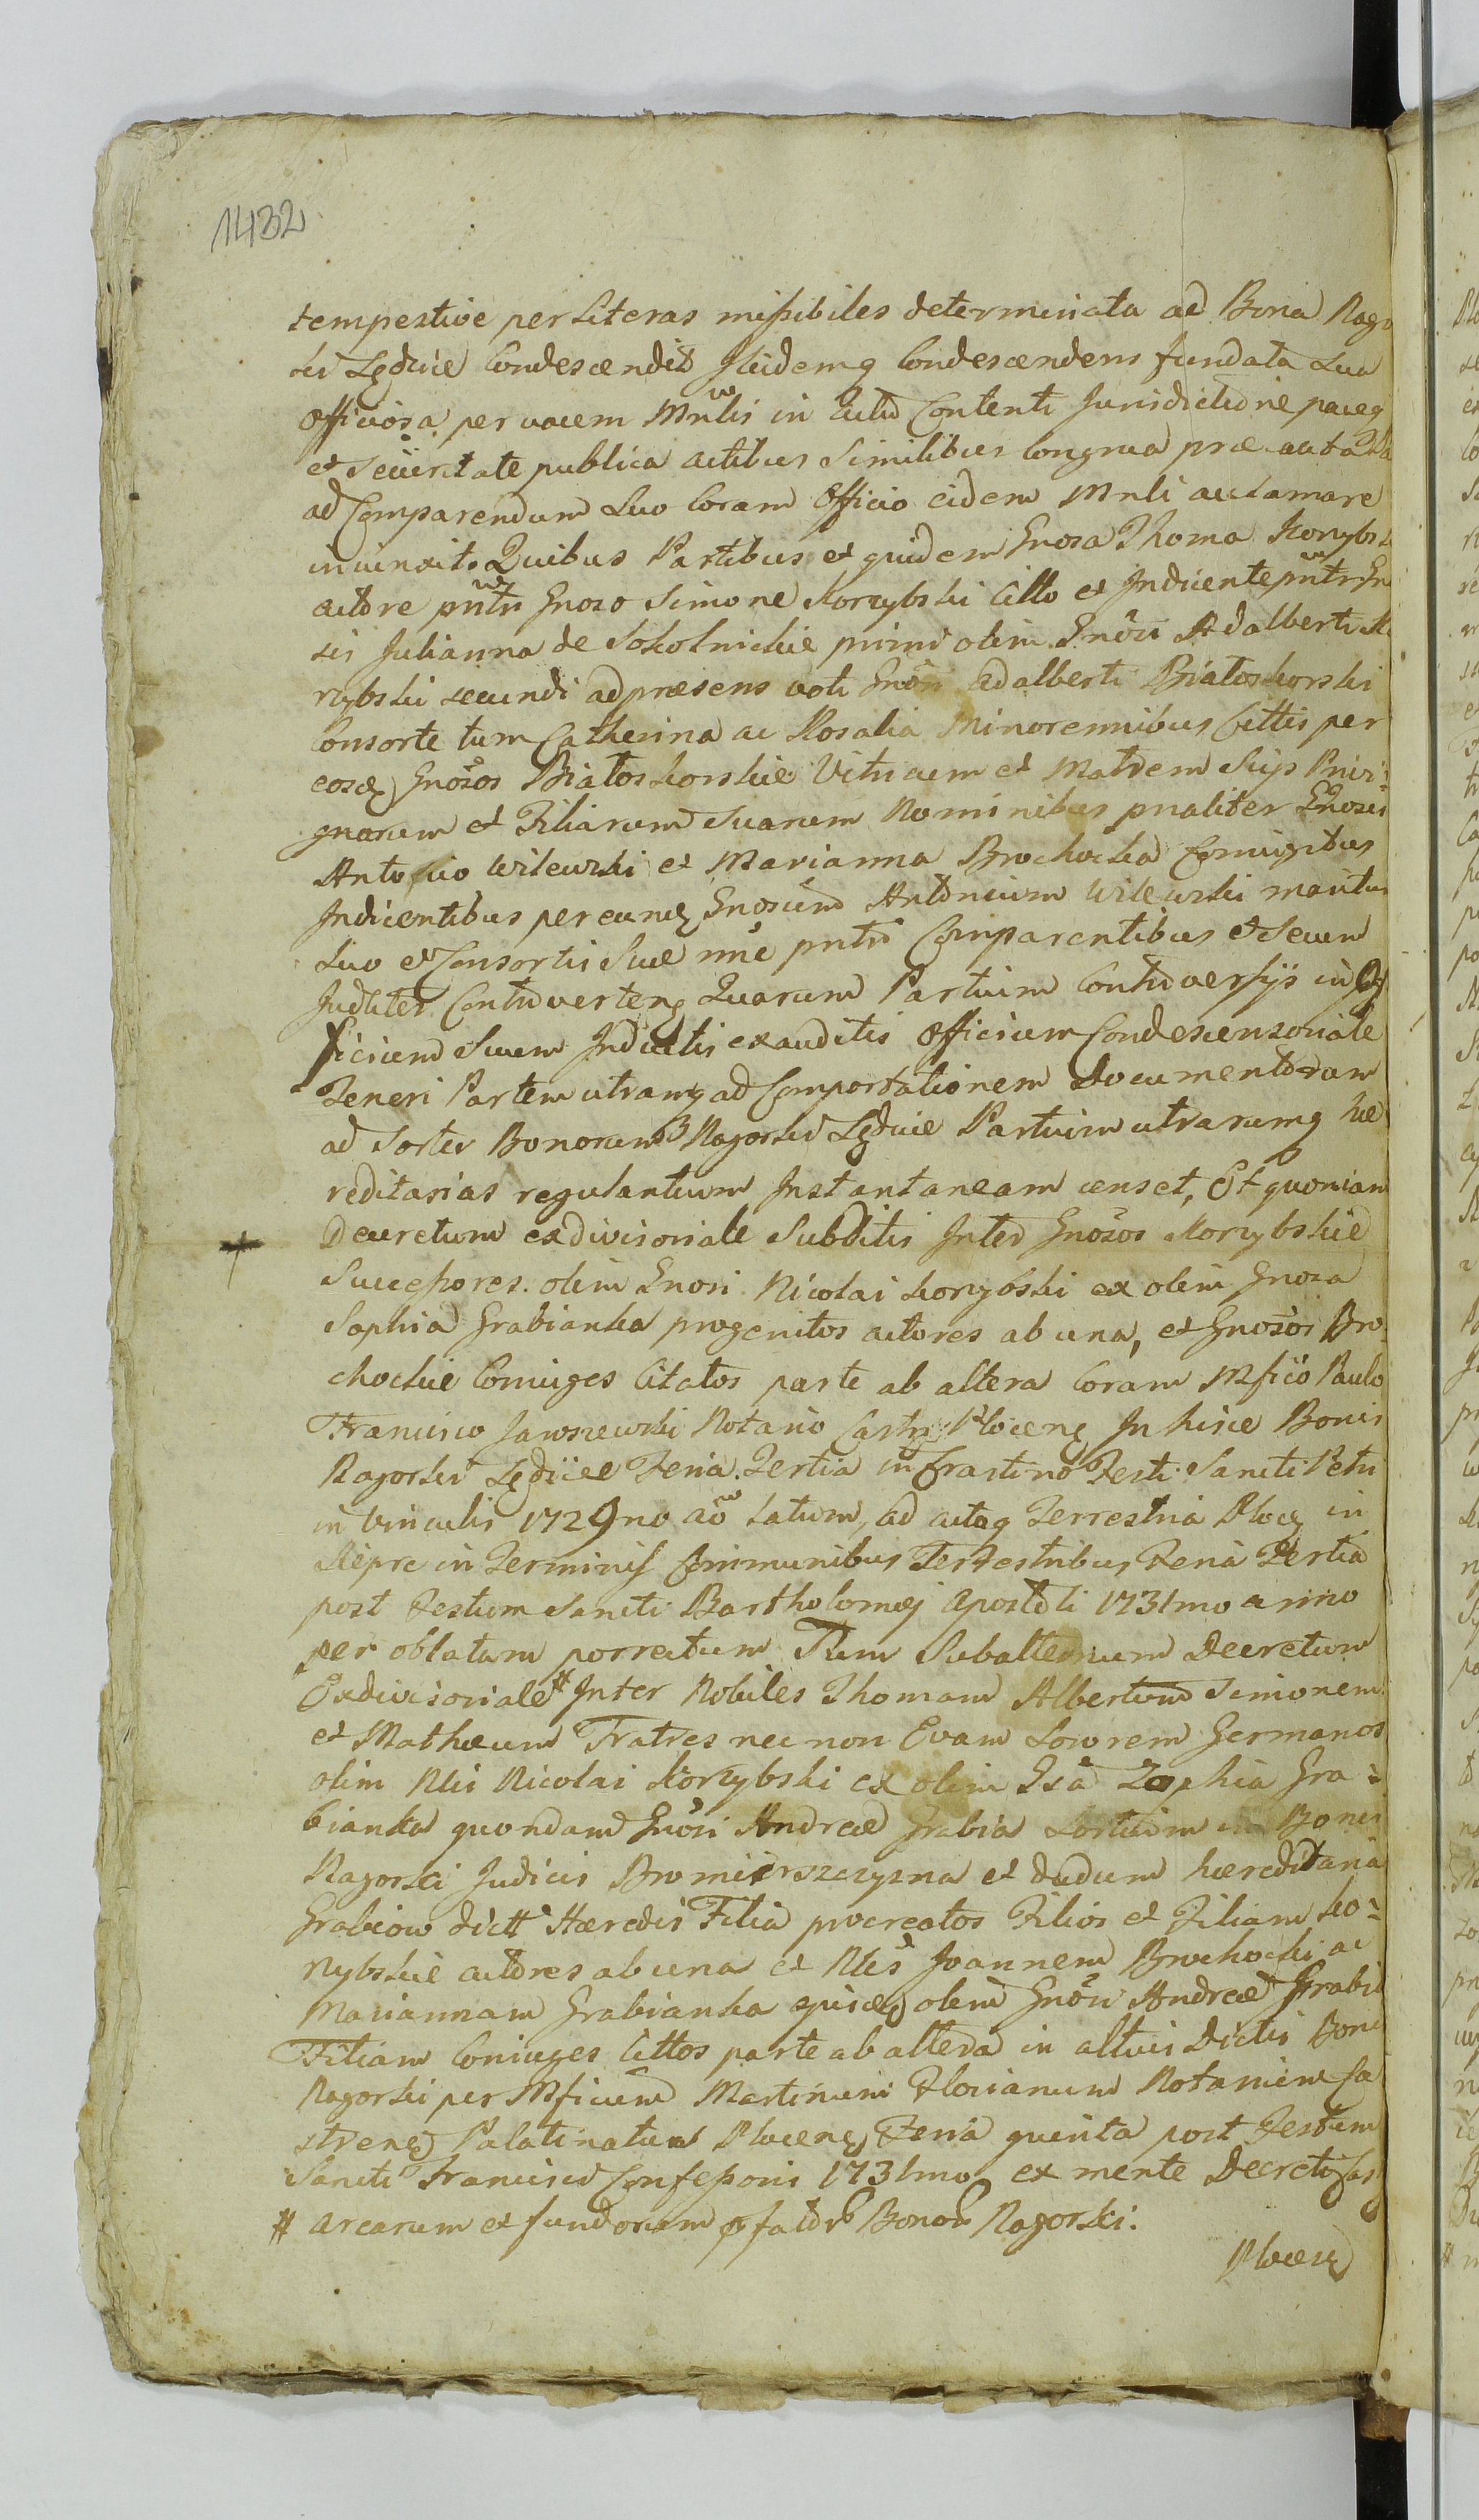 1432
tempestive per Literas missibiles determinata ad Bona Rago
ski Lędzice Condescendit Ibidemq Condescendens fundata sua
officiosa per vocem Mnlis in actu Contenti Jurisdictione paceq
et securitate publica actibus Similibus congrua prae cauta
ad Comparendum suo coram Officio eidem Mnli aclamare
iniunxit. Quibus Partibus et quidem Gnoso Thoma Korzybs
actore pntr Gnoso Simone Korzybski Citto et Indicente pntr Gn
sis Julianna de Sokolnickie primi olim Gnosi Adalberti Ko
rzybski secundi ad praesens voti Gnosi Adalberti Białoskorski
Consorte tum Catherina ac Rosalia Minorennibus Cittis per
eosdę Gnosos Białoskorskie Vitricum et Matrem suis Privi:
gnarum et Filiarum Suarum Nominibus pnaliter Gnosis
Antonio Wilewski et Marianna Brochocka Coniugibus
Indicentibus per eundę Gnosum Antonium Wilewski maritum
suo et Consortis suae nne pntr Comparentibus et secum
Judlter Controverteng Quarum Partium Controversijs in Of
ficium Suum Inductis exauditis Officium Condescensoriale
Teneri Partem utramq ad Comportationem Documentorum
ad Sortes Bonorum Ragorski Lędzice Partium utrarumq hæ
reditarias regulantium Instantaneam censet, Et quoniam
Decretum exdivisoriale Subditis Inter Gnosos Korzybskie
Successores olim Gnosi Nicolai Korzybski ex olim Gnosa
Sophia Grabianka progenitos actores ab una, et Gnosos Bro
chockie Coniuges Citatos parte ab altera Coram Mfico Paulo
Francisco Jaroszewski Notario Castri Plocenę In hisce Bonis
Ragorski Lędzice Feria Tertia in Crastino Festi Sancti Petri
in Vinculis 1729no ao latum, ad actaq Terrestria Plocę in
Sieprc in Terminis Communibus Terrestribus Feria Tertia
post Festum Sancti Bartholomęi Apostoli 1731mo anno
per oblatam porrectum Tum Subalternum Decretum
Exdivisoriale # Inter Nobiles Thomam Albertum Simonem
et Mathæum Fratres nec non Evam Sororem Germanos
olim Nlis Nicolai Korzybski ex olim Gsa Zophia Gra:
bianka quondam Gnosi Andreæ Grabia Sortium in Bonis
Ragorski Judicis Bromierszczyzna et dudum hæreditaria
Grabiow dictt Hæredis Filia procreatos Filios et Filiam Ko:
rzybskie actores ab una et Nles Joannem Brochocki ac
Mariannam Grabianka eiusdę olim Gnosi Andreæ Grabia
Filiam Coniuges Cittos parte ab altera in altius Dictis Bonis
Ragorski per Mficum Martinum Florianum Notarium Ca
strenę Palatinatus Plocenę Feria quinta post Festum
Sancti Francisci Confessoris 1731mo ex mente Decreti Cas
# arearum et fundorum pfator Bonor Ragorski.
Plocenę